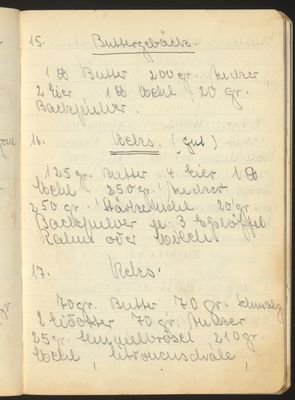 15. Buttergebäck.
1 ℔ Butter 200 gr. Zucker,
2 Eier 1 ℔ Mehl, 20 gr.
Backpulver.
16. Keks. (gut)
125 gr. Butter 4 Eier 1 ℔
Mehl 250 gr. Zucker
250 gr. Stärkemehl 20 gr
Backpulver u. 3 Eßlöffel
Rahm oder Milch
17. Keks.
70 gr. Butter, 70 gr. Schmalz
2 Eidotter 70 gr. Zucker
25 gr. Semmelbrösel, 210 gr.
Mehl, Citronenschale,